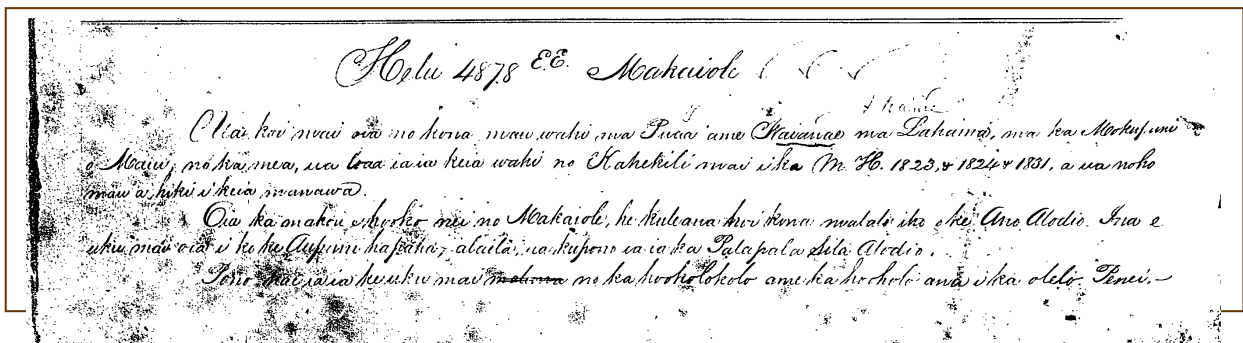 Helu 4878 E.E. Makaiole
Ua koi mai oia no kona mau wahi ma Puaa ame Waianae ma Lahaina, ma ka Mokupuni
o Maui, no ka mea, ua loaa iaia keia wahi no Kahekili mai i ka M. H. 1823, & 1824 & 1831, a ua noho
mau a hiki i keia manawa.
Oia ka makou e hooko nei no Makaiole, he kuleana hoi kona malalo iho o ke Ano Alodio. Ina e
uku mai oia i ko ke Aupuni hapaha, alaila, ua kupono ia ia ka Palapala Sila Alodio.
Pono hoi iaia ke uku mai no ka hookolokolo ame ka hooholo ana i ka olelo Penei,—